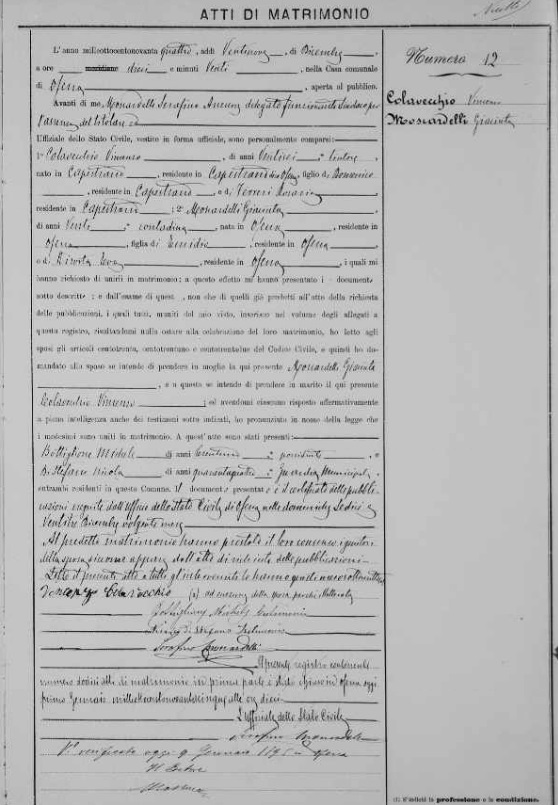 ATTI DI MATRIMONIO
Numero 12
Colavecchio Vincenzo
Moscardelli Giacinta
L'anno millottocentonovanta quattro, addì Ventinove, di Dicembre,
a ore meridiane dieci e minuti Venti, nella Casa comunale
di Ofena, aperta al pubblico.
Avanti di me Moscardelli Serafino Assessore delegato funzionante Sindaco per
l'assenza del titolare
Uffiziale dello Stato Civile, vestito in forma uffiziale, sono personalmente comparsi:
1° Colavecchio Vincenzo, di anni Ventisei,
nato in Capestrano, residente in Capestrano, figlio di Domenico
, residente in Capestrano, e di
residente in Capestrano; 2° Moscardelli Giacinta
di anni Venti, contadina, nata in Ofena, residente in
Ofena, figlia di Emidio, residente in Ofena
e di, residente in Ofena, i quali mi
hanno richiesto di unirli in matrimonio; a questo effetto mi hanno presentato i documenti
sotto descritti; e dall'esame di questi, non che di quelli già prodotti all'atto della richiesta
delle pubblicazioni, i quali tutti, muniti del mio visto, inserisco nel volume degli allegati a
questo registro, risultandomi nulla ostare alla celebrazione del loro matrimonio, ho letto agli
sposi gli articoli centotrenta, centotrentuno e centotrentadue del Codice Civile, e quindi ho do-
mandato allo sposo se intende di prendere in moglie la qui presente Moscardelli Giacinta
, e a questa se intende di prendere in marito il qui presente
Colavecchio Vincenzo; ed avendomi ciascuno risposto affermativamente
a piena intelligenza anche dei testimoni sotto indicati, ho pronunziato in nome della legge che
i medesimi sono uniti in matrimonio. A quest'atto sono stati presenti:
Bottiglione Michele di anni, possidente, e
Di Stefano Nicola di anni quarantaquattro, Guardia Municipale,
entrambi residenti in questo Comune. I documenti presentati è il certificato delle pubbli-
cazioni eseguite dall'Ufficio dello Stato Civile di Ofena nelle domeniche Sedici e
Ventitre Dicembre volgente mese
Al predetto matrimonio hanno prestato il loro consenso i genitori
della sposa siccome appare dall'atto di richiesta delle pubblicazioni.
Letto il presente atto a tutti gl'intervenuti lo hanno questi meco sottoscritto
ad eccezione della sposa perchè illetterata
Colavecchio
Bottiglione Michele testimonio
di Stefano testimonio
Serafino Moscardelli
Il presente registro contenente
numero dodici atti di matrimonio in prima parte è stato chiuso in Ofena oggi
primo Gennaio milleottocentonovantacinque alle ore dieci
L'uffiziale dello Stato Civile
Serafino Moscardelli
V° verificato oggi 9 Gennaio 1895 in Ofena
Il Pretore
(1) S'indichi la professione o la condizione.